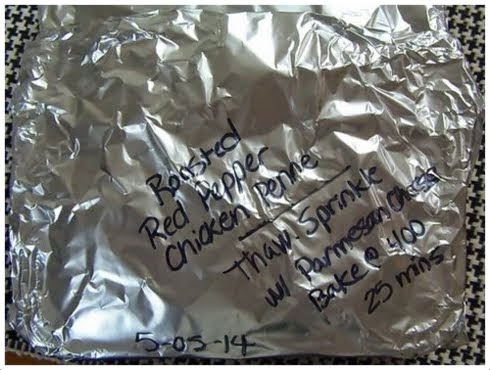 Roasted
Red Pepper
Chicken Penne
Thaw. Sprinkle
w/ Parmesan Cheese
Bake @ 400
25 mins
5-05-14